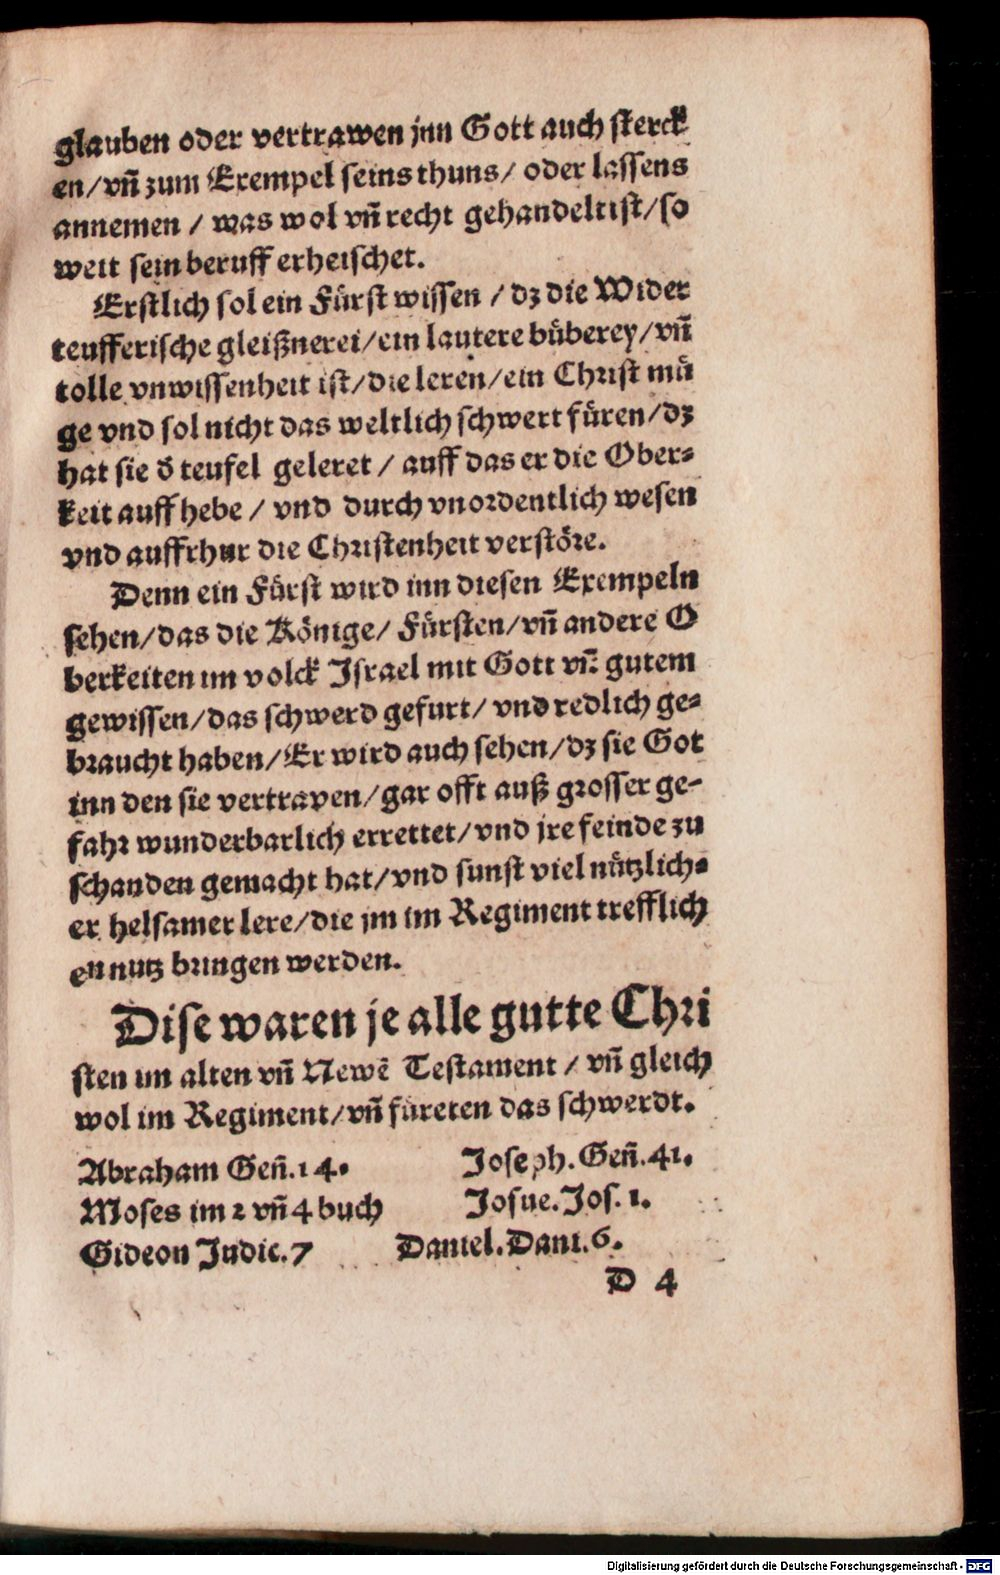 glauben oder vertrawen jnn Gott auch sterck
en/vn̄ zum Exempel seins thuns/ oder lassens
annemen / was wol vn̄ recht gehandelt ist/so
weit sein beruff erheischet.
Erstlich sol ein Fürst wissen / dz die Wider
teufferische gleißnerei/ein lautere büberey/vn̄
tolle vnwissenheit ist/die leren/ein Christ mü
ge vnd sol nicht das weltlich schwert füren/dz
hat sie d̄ teufel geleret / auff das er die Ober-
keit auff hebe / vnd durch vnordentlich wesen
vnd auffrhur die Christenheit verstöre.
Denn ein Fürst wird inn diesen Exempeln
sehen/das die Könige/ Fürsten/vn̄ andere O
berkeiten im volck Israel mit Gott vn̄ gutem
gewissen/das schwerd gefurt/ vnd redlich ge-
braucht haben/Er wird auch sehen/dz sie Got
inn den sie vertraven/gar offt auß grosser ge-
fahr wunderbarlich errettet/vnd jre feinde zu
schanden gemacht hat/vnd sunst viel nützlich-
er helsamer lere/die jm im Regiment trefflich
en nutz bringen werden.
Dise waren je alle gutte Chri
sten im alten vn̄ Newē Testament / vn̄ gleich
wol im Regiment/vn̄ füreten das schwerdt.
Abraham Geñ.14. Joseph. Geñ.41.
Moses im 2 vn̄ 4 buch Josue. Jos. 1.
Gideon Judic. 7 Daniel. Dani. 6.
D 4
Digitalisierung gefördert durch die Deutsche Forschungsgemeinschaft - DFG